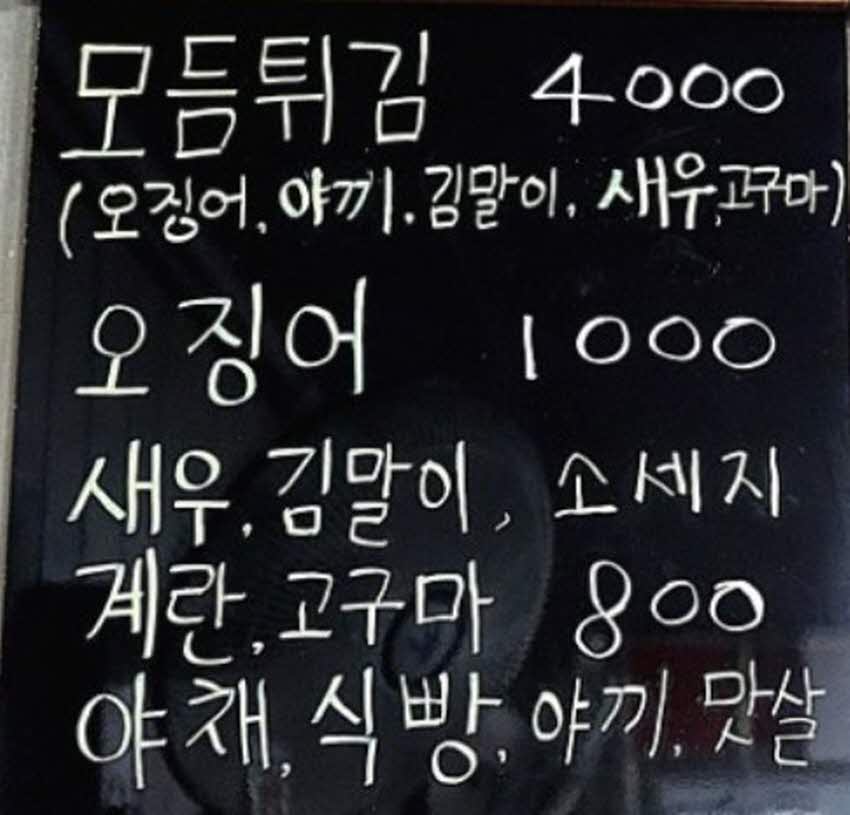 모듬튀김 4000
(오징어, 야끼, 김말이, 새우, 고구마)
오징어 1000
새우, 김말이, 소세지
계란, 고구마 800
야채, 식빵, 야끼, 맛살